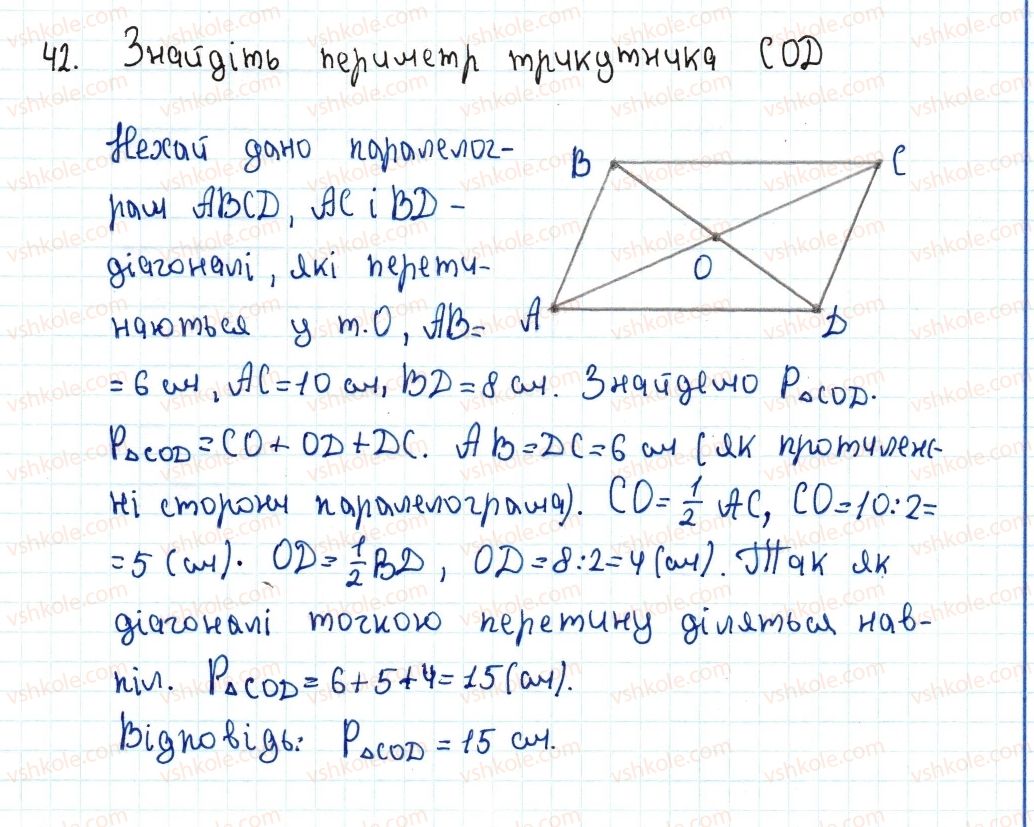 42. Знайдіть периметр трикутника COD
Нехай дано паралелог-
рам ABCD, AC і BD -
діагоналі, які перети-
наються у т.O, AB=
= 6 см, AC = 10 см, BD = 8 см. Знайдемо P△COD.
P△COD = CO + OD + DC. AB = DC = 6 см (як протилеж-
ні сторони паралелограма). CO = 1/2 AC, CO = 10:2 =
= 5 (см). OD = 1/2 BD, OD = 8:2 = 4 (см). Так як
діагоналі точкою перетину діляться нав-
піл. P△COD = 6 + 5 + 4 = 15 (см).
Відповідь: P△COD = 15 см.
B
C
O
A
D
vshkole.com